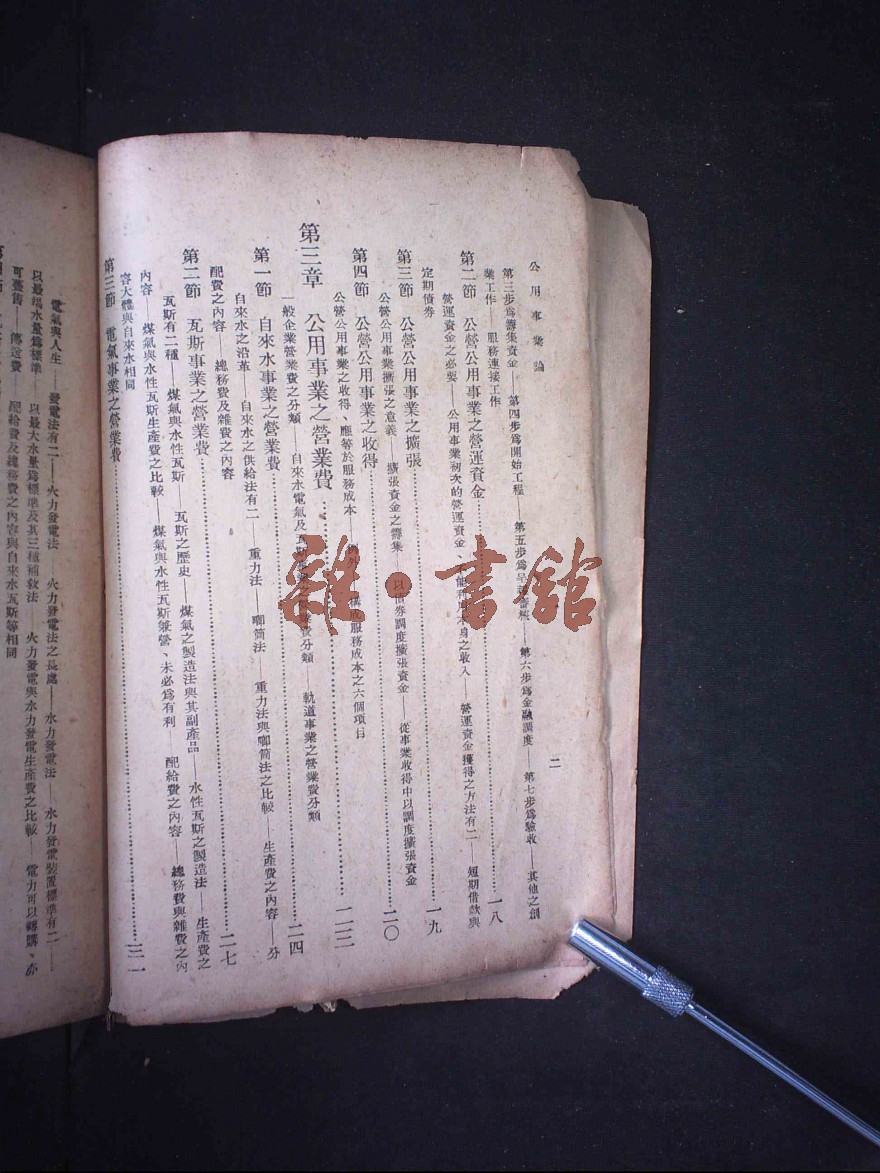 公用事業論
二
第三步爲籌集資金——第四步爲開始工程——第五步爲——第六步爲金融調度——第七步爲驗收——其他之創
業工作——服務連接工作
第二節 公營公用事業之營運資金……一八
營運資金之必要——公用事業初次的營運資金、不能利用本身之收入——營運資金獲得之方法有二——短期借款與
定期債券
第三節 公營公用事業之擴張……一九
公營公用事業擴張之意義——擴張資金之籌集——以債券調度擴張資金——從事業收得中以調度擴張資金
第四節 公營公用事業之收得……二〇
公營公用事業之收得、應等於服務成本——例外——構成服務成本之六個項目
第三章 公用事業之營業費……二三
一般企業營業費之分類——自來水電氣及瓦斯事業之營業費分類——軌道事業之營業費分類
第一節 自來水事業之營業費……二四
自來水之沿革——自來水之供給法有二——重力法——喞筒法——重力法與喞筒法之比較——生產費之內容——分
配費之內容——總務費及雜費之內容
第二節 瓦斯事業之營業費……二七
瓦斯有二種——煤氣與水性瓦斯——瓦斯之歷史——煤氣之製造法與其副產品——水性瓦斯之製造法——生產費之
內容——煤氣與水性瓦斯生產費之比較——煤氣與水性瓦斯兼營、未必爲有利——配給費之內容——總務費與雜費之內
容大體與自來水相同
第三節 電氣事業之營業費……三一
電氣與人生——發電法有二——火力發電法——火力發電法之長處——水力發電法——水力發電裝置標準有二——
以最渴水量爲標準——以最大水量爲標準及其三種補救法——火力發電與水力發電生產費之比較——電力可以轉購、亦
可躉售——傳送費——配給費及總務費之內容與自來水瓦斯等相同
雜·書館